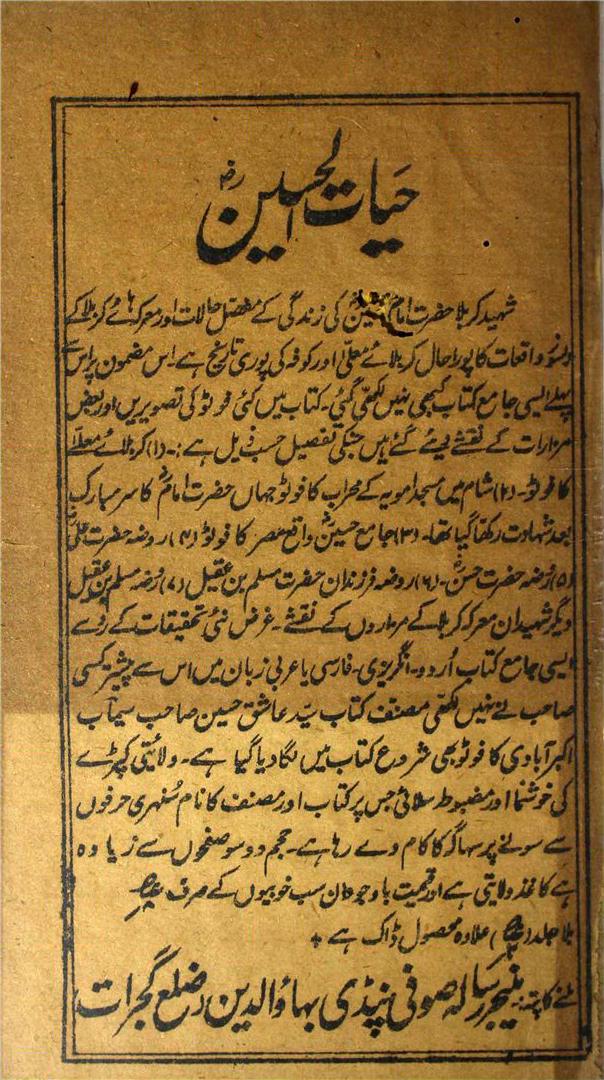 حیات الحسین رض
شہید کربلا حضرت امام حسین کی زندگی کے مفصل حالات اور معرکہ ہائے کربلا کے
واقعات کا پورا حال کربلائے معلیٰ اور کوفہ کی پوری تاریخ ہے۔ اس مضمون پر اس سے
پہلے ایسی جامع کتاب کبھی نہیں لکھی گئی۔ کتاب میں کئی فوٹو کی تصویریں اور بعض
مزارات کے نقشے دیئے گئے ہیں جنکی تفصیل حسب ذیل ہے:۔ (۱) کربلائے معلیٰ
کا فوٹو۔ (۲) شام میں مسجد امویہ کے محراب کا فوٹو جہاں حضرت امام کا سر مبارک
بعد شہادت رکھا گیا تھا۔ (۳) جامع حسین واقع مصر کا فوٹو (۴) روضہ حضرت علی
(۵) روضہ حضرت حسن۔ (۶) روضہ فرزندان حضرت مسلم بن عقیل (۷) روضہ مسلم بن عقیل
دیگر شہیدان معرکہ کربلا کے مزاروں کے نقشے۔ غرض نئی تحقیقات کے روسے
ایسی جامع کتاب اُردو۔ انگریزی۔ فارسی یا عربی زبان میں اس سے پیشتر کسی
صاحب نے نہیں لکھی مصنف کتاب سید عاشق حسین صاحب سیماب
اکبر آبادی کا فوٹو بھی شروع کتاب میں لگا دیا گیا ہے۔ ولائتی کپڑے
کی خوشنما اور مضبوط سلائی جس پر کتاب اور مصنف کا نام سنہری حرفوں
سے سونے پر سہاگہ کا کام دے رہا ہے۔ حجم دو سو صفحوں سے زیادہ
ہے کاغذ ولایتی ہے اور قیمت باوجود ان سب خوبیوں کے صرف
بلا جلد علاوہ محصول ڈاک ہے
ملنے کا پتہ:۔ منیجر رسالہ صوفی پنڈی بہاؤالدین ضلع گجرات